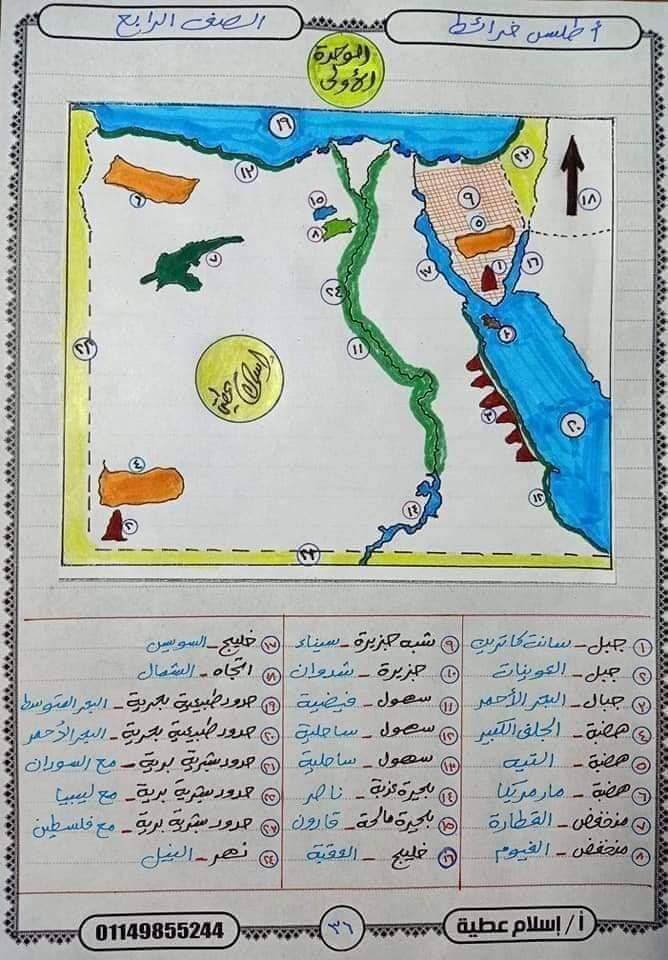 أطلس خرائط
الصف الرابع
الوحدة
الأولى
١٩
١٢
٦
٧
١٥
٨
٩
٥
١
٢٢
١٨
١٦
١٧
٢٤
١١
٢٠
٣
١٢
٤
١٤
إسلام عطية
١ جبل - سانت كاترين
٢ جبل - العوينات
٣ جبال - البحر الأحمر
٤ هضبة - الجلف الكبير
٥ هضبة - التيه
٦ هضبة - مارمريكا
٧ منخفض - القطارة
٨ منخفض - الفيوم
٩ شبه جزيرة - سيناء
١٠ جزيرة - شدوان
١١ سهول - فيضية
١٢ سهول - ساحلية
١٣ سهول - ساحلية
١٤ بحيرة عذبة - ناصر
١٥ بحيرة مالحة - قارون
١٦ خليج - العقبة
١٧ خليج - السويس
١٨ اتجاه - الشمال
١٩ حدود طبيعية بحرية - البحر المتوسط
٢٠ حدود طبيعية بحرية - البحر الأحمر
٢١ حدود بشرية برية - مع السودان
٢٢ حدود بشرية برية - مع ليبيا
٢٣ حدود بشرية برية - مع فلسطين
٢٤ نهر - النيل
أ / إسلام عطية
٣٦
01149855244